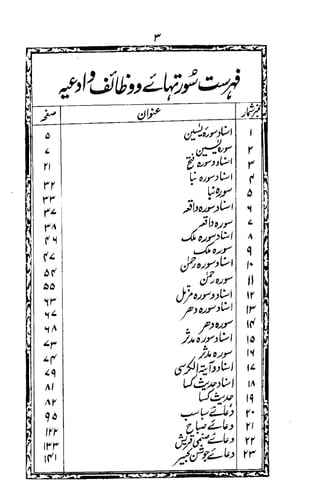 ۳
فہرست سورتہائے و وظائف و ادعیہ
نمبر شمار عنوان صفحہ
۱ اسناد سورہ یٰسین ۵
۲ سورہ یٰسین ۷
۳ اسناد و سورہ فتح ۲۱
۴ اسناد سورہ نبا ۳۲
۵ سورہ نبا ۳۳
۶ اسناد سورہ واقعہ ۳۷
۷ سورہ واقعہ ۳۸
۸ اسناد سورہ ملک ۴۶
۹ سورہ ملک ۴۷
۱۰ اسناد سورہ رحمٰن ۵۴
۱۱ سورہ رحمٰن ۵۵
۱۲ اسناد و سورہ مزمل ۶۳
۱۳ اسناد سورہ دھر ۶۷
۱۴ سورہ دھر ۶۸
۱۵ اسناد سورہ مدثر ۷۳
۱۶ سورہ مدثر ۷۴
۱۷ اسناد و آیۃ الکرسی ۷۹
۱۸ اسناد حدیث کسا ۸۱
۱۹ حدیث کسا ۸۲
۲۰ دعائے سباسب ۹۵
۲۱ دعائے صباح ۱۲۲
۲۲ دعائے صنمی قریش ۱۳۳
۲۳ دعائے جوشن کبیر ۱۴۱